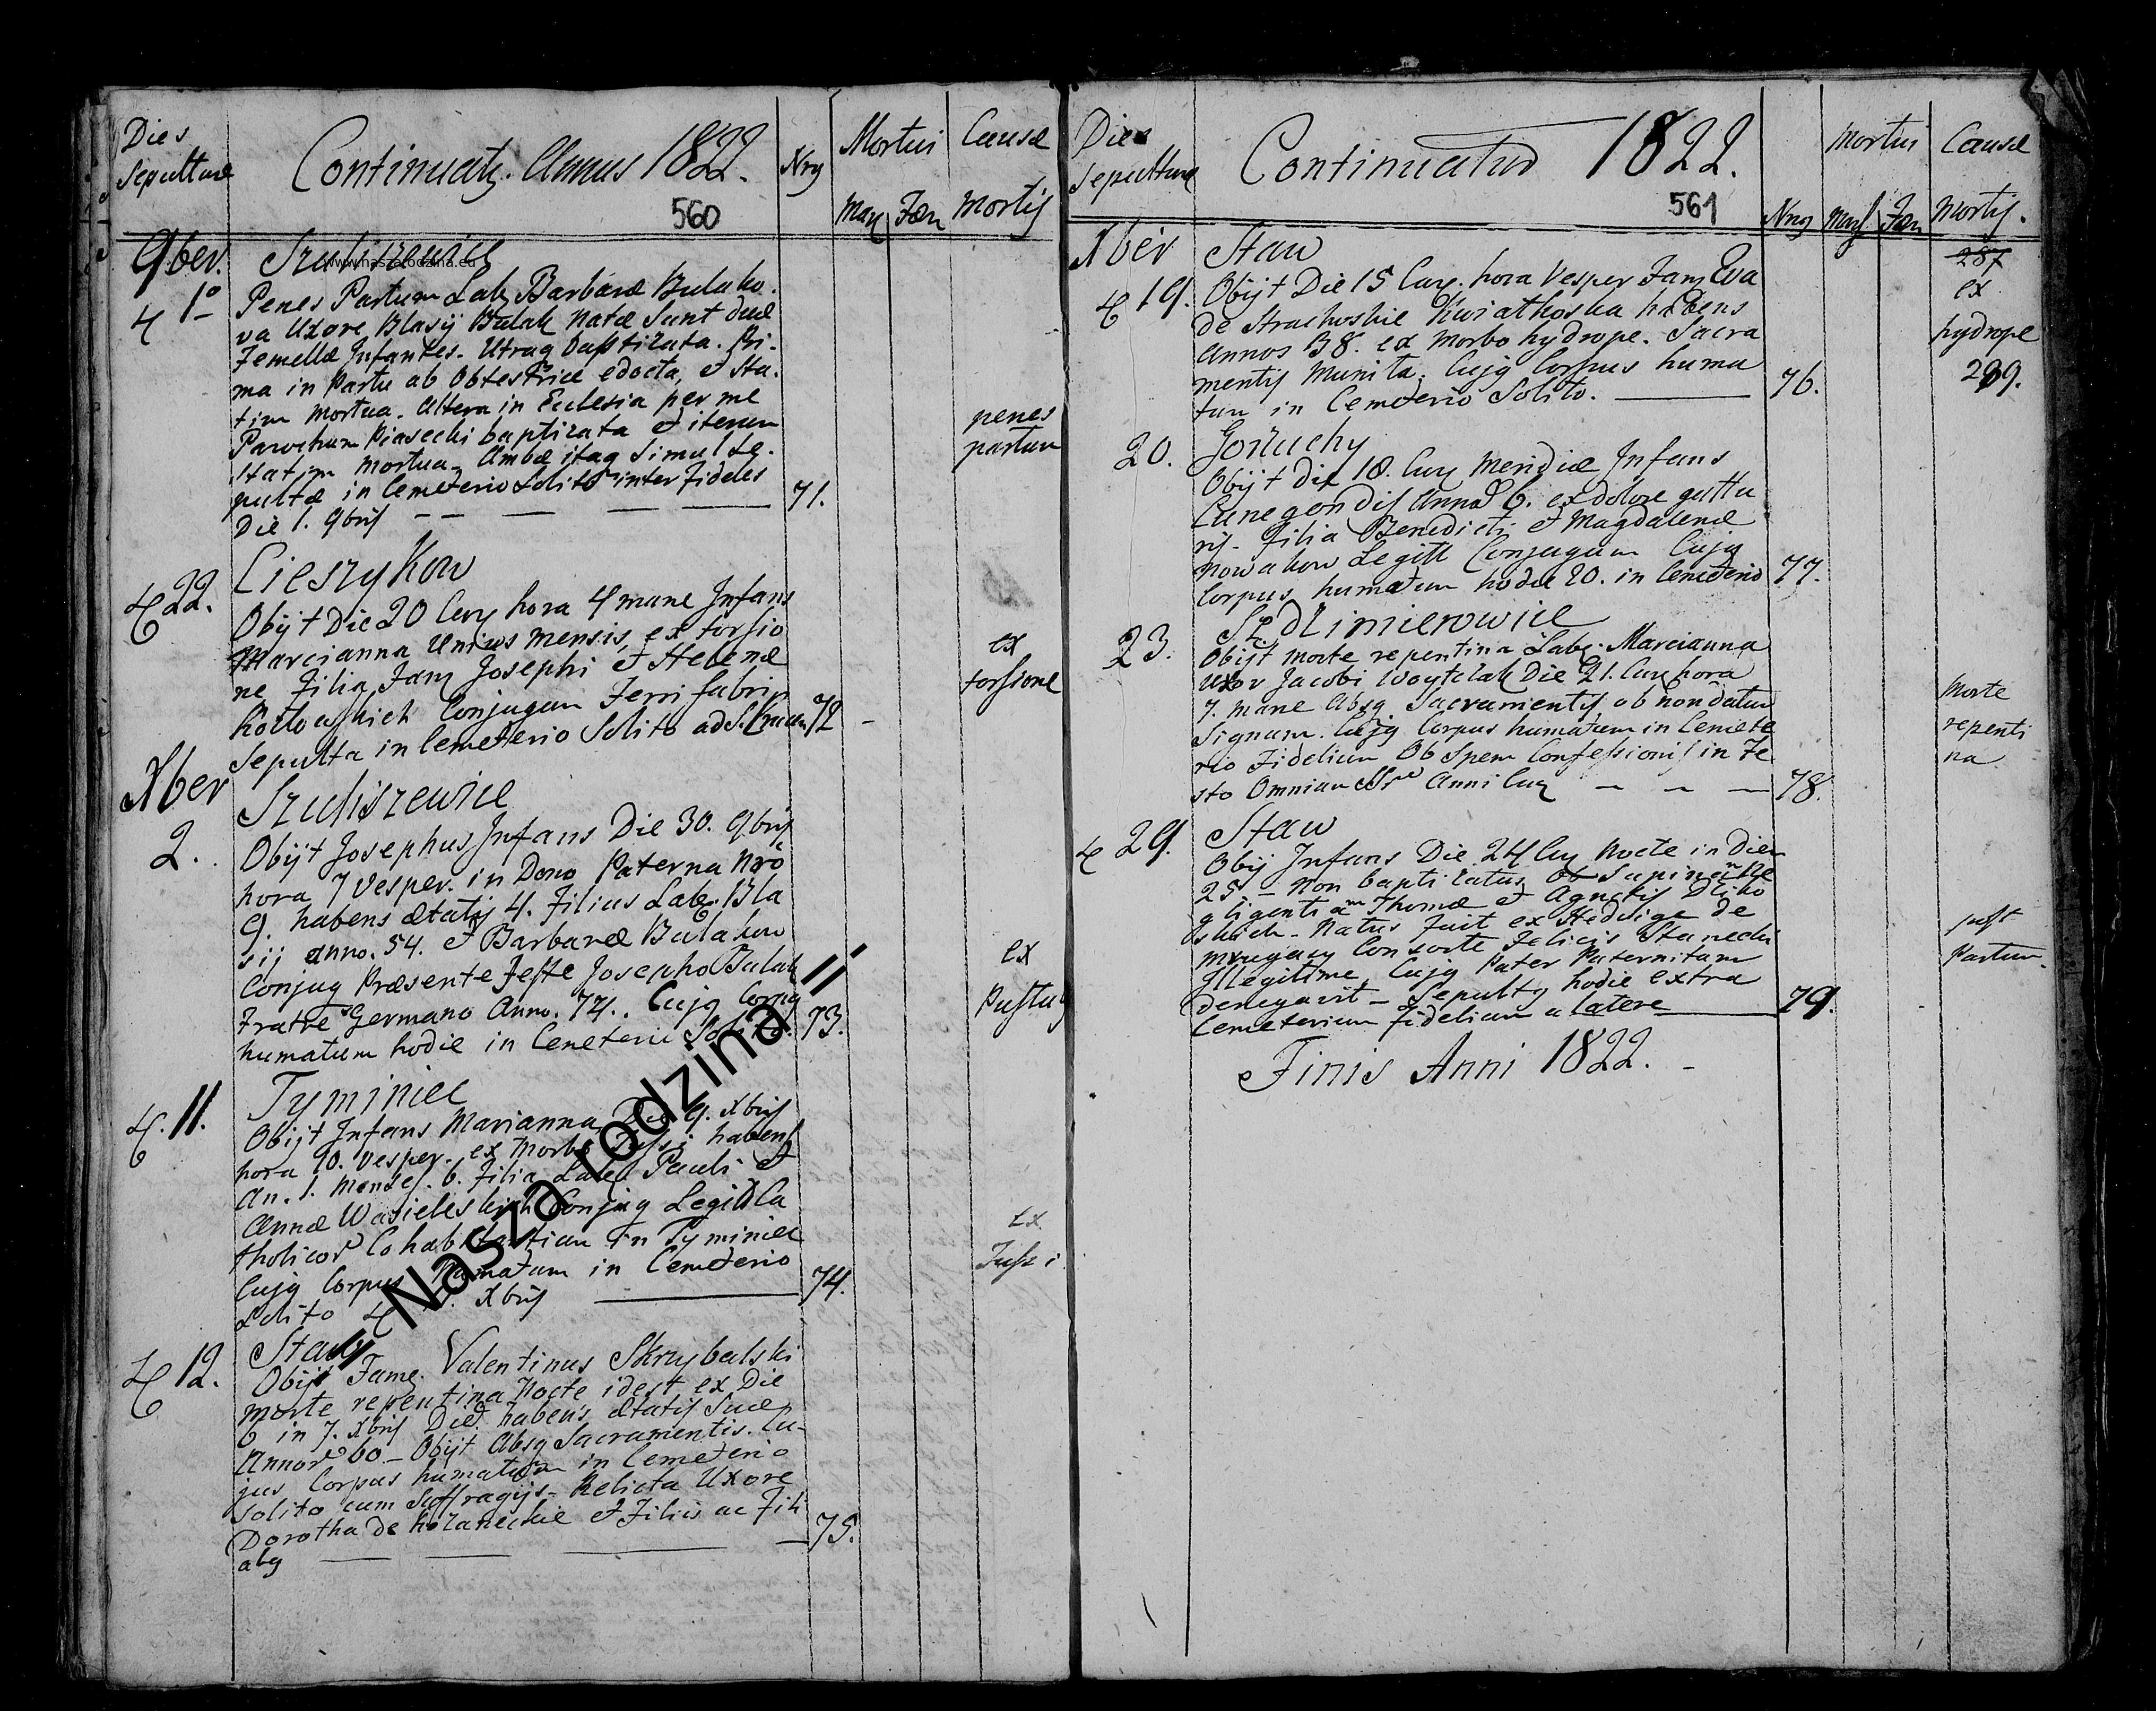 Dies
Sepulturæ
Continuatq. Annus 1822.
Nrq
Mortui
Causæ
560
Mas Fæm Mortis
9ber. Szuliszewice
www.naszarodzina.eu
1º Penes Partum Lab. Barbaræ Bulako
va Uxore Blasij Bulak Natæ Sunt duæ
Femellæ Infantes. Utraq Baptizata. Pri-
ma in Partu ab Obtestrice edocta, et Sta-
tim Mortua. Altera in Eclesia per me
Parochum Piasecki baptizata et iterum
statim Mortua. Ambæ itaq Simul Se-
pultæ in Cemeterio Solito inter fideles
Die 1. 9bris
71.
penes
partum
Cieszykow
22. Obijt Die 20 Curr hora 4 mane Infans
Marcianna Unius Mensis, ex torsio
ne Filia Fam Josephi et Helenæ
Kottowskich Conjugum Ferri fabri
Sepulta in Cemeterio Solito ad S. Crucem
72
ex
torsione
Xber
2. Szuliszewice
Obijt Josephus Infans Die 30. 9bris
hora 7 Vesper. in Domo Paterna Nrô
9. habens ætatis 4. Filius Lab. Bla
sij anno. 54. et Barbaræ Bulakow
Conjug Præsente Teste Josepho Bulak
Fratre Germano Anno. 74. Cujq Corpq
humatum hodie in Cemeterio Solito.
73.
ex
Pustulq
11. Tyminiec
Obijt Infans Marianna Die 9. Xbris
hora 10. Vesper. ex Morbo Tussi habens
An. 1. Menses. 6. Filia Lab. Pauli et
Annæ Wasieleskich Conjug Legitt Ca
tholicor Cohabitantium in Tyminiec
Cujq Corpus humatum in Cemeterio
Solito Xbris
74.
ex
Tussi
// Nasza rodzina //
12. Staw
Obijt Fame. Valentinus Skrzybalski
morte repentina Nocte idest ex Die
6 in 7. Xbris Die habens ætatis Suæ
Annor 60 - Obijt Absq Sacramentis. Cu-
jus Corpus humatum in Cemeterio
Solito cum Suffragijs - Relicta Uxore
Dorotha de Kozaneckie et Filiis ac Fili
abq
75.
Dies
Sepulturæ
Continuatur 1822.
561
Mortui
Causæ
Nrq Mas Fæm Mortis.
Xber Staw
287
19. Obijt Die 15 Curr. hora Vesper Fam Eva
de Strachoskie Kwiatkoska habens
Annos 38. ex Morbo hydrope. Sacra
mentis Munita. Cujq Corpus huma
tum in Cemeterio Solito.
76.
ex
hydrope
289.
20. Gorzuchy
Obijt Die 18. Curr Meridiæ Infans
Cunegondis Anno 6. ex dolore guttu
ris - Filia Benedicti et Magdalenæ
Nowakow Legitt Conjugum Cujq
Corpus humatum hodie 20. in Cemeterio
77.
23.
Obijt morte repentina Lab. Marcianna
Uxor Jacobi Woytelak Die 21. Curr hora
7. mane Absq Sacramentis ob non datum
Signum. Cujq Corpus humatum in Cemete
rio Fidelium Ob Spem Confessionis in Fe
sto Omnium SSr Anni Curr
78.
Morte
repenti
na
29. Staw
Obij Infans Die 24 Curr Nocte in Diem
25 - Non baptizatus Ob Supinam Ne
gligentiam Thomæ et Agnetis
- Natus fuit ex Hedvige de
Consorte Felicis Stanecki
Illegitime Cujq Pater Paternitatem
denegavit - Sepultq hodie extra
Cemeterium fidelium a latere
79.
post
Partum.
Finis Anni 1822.